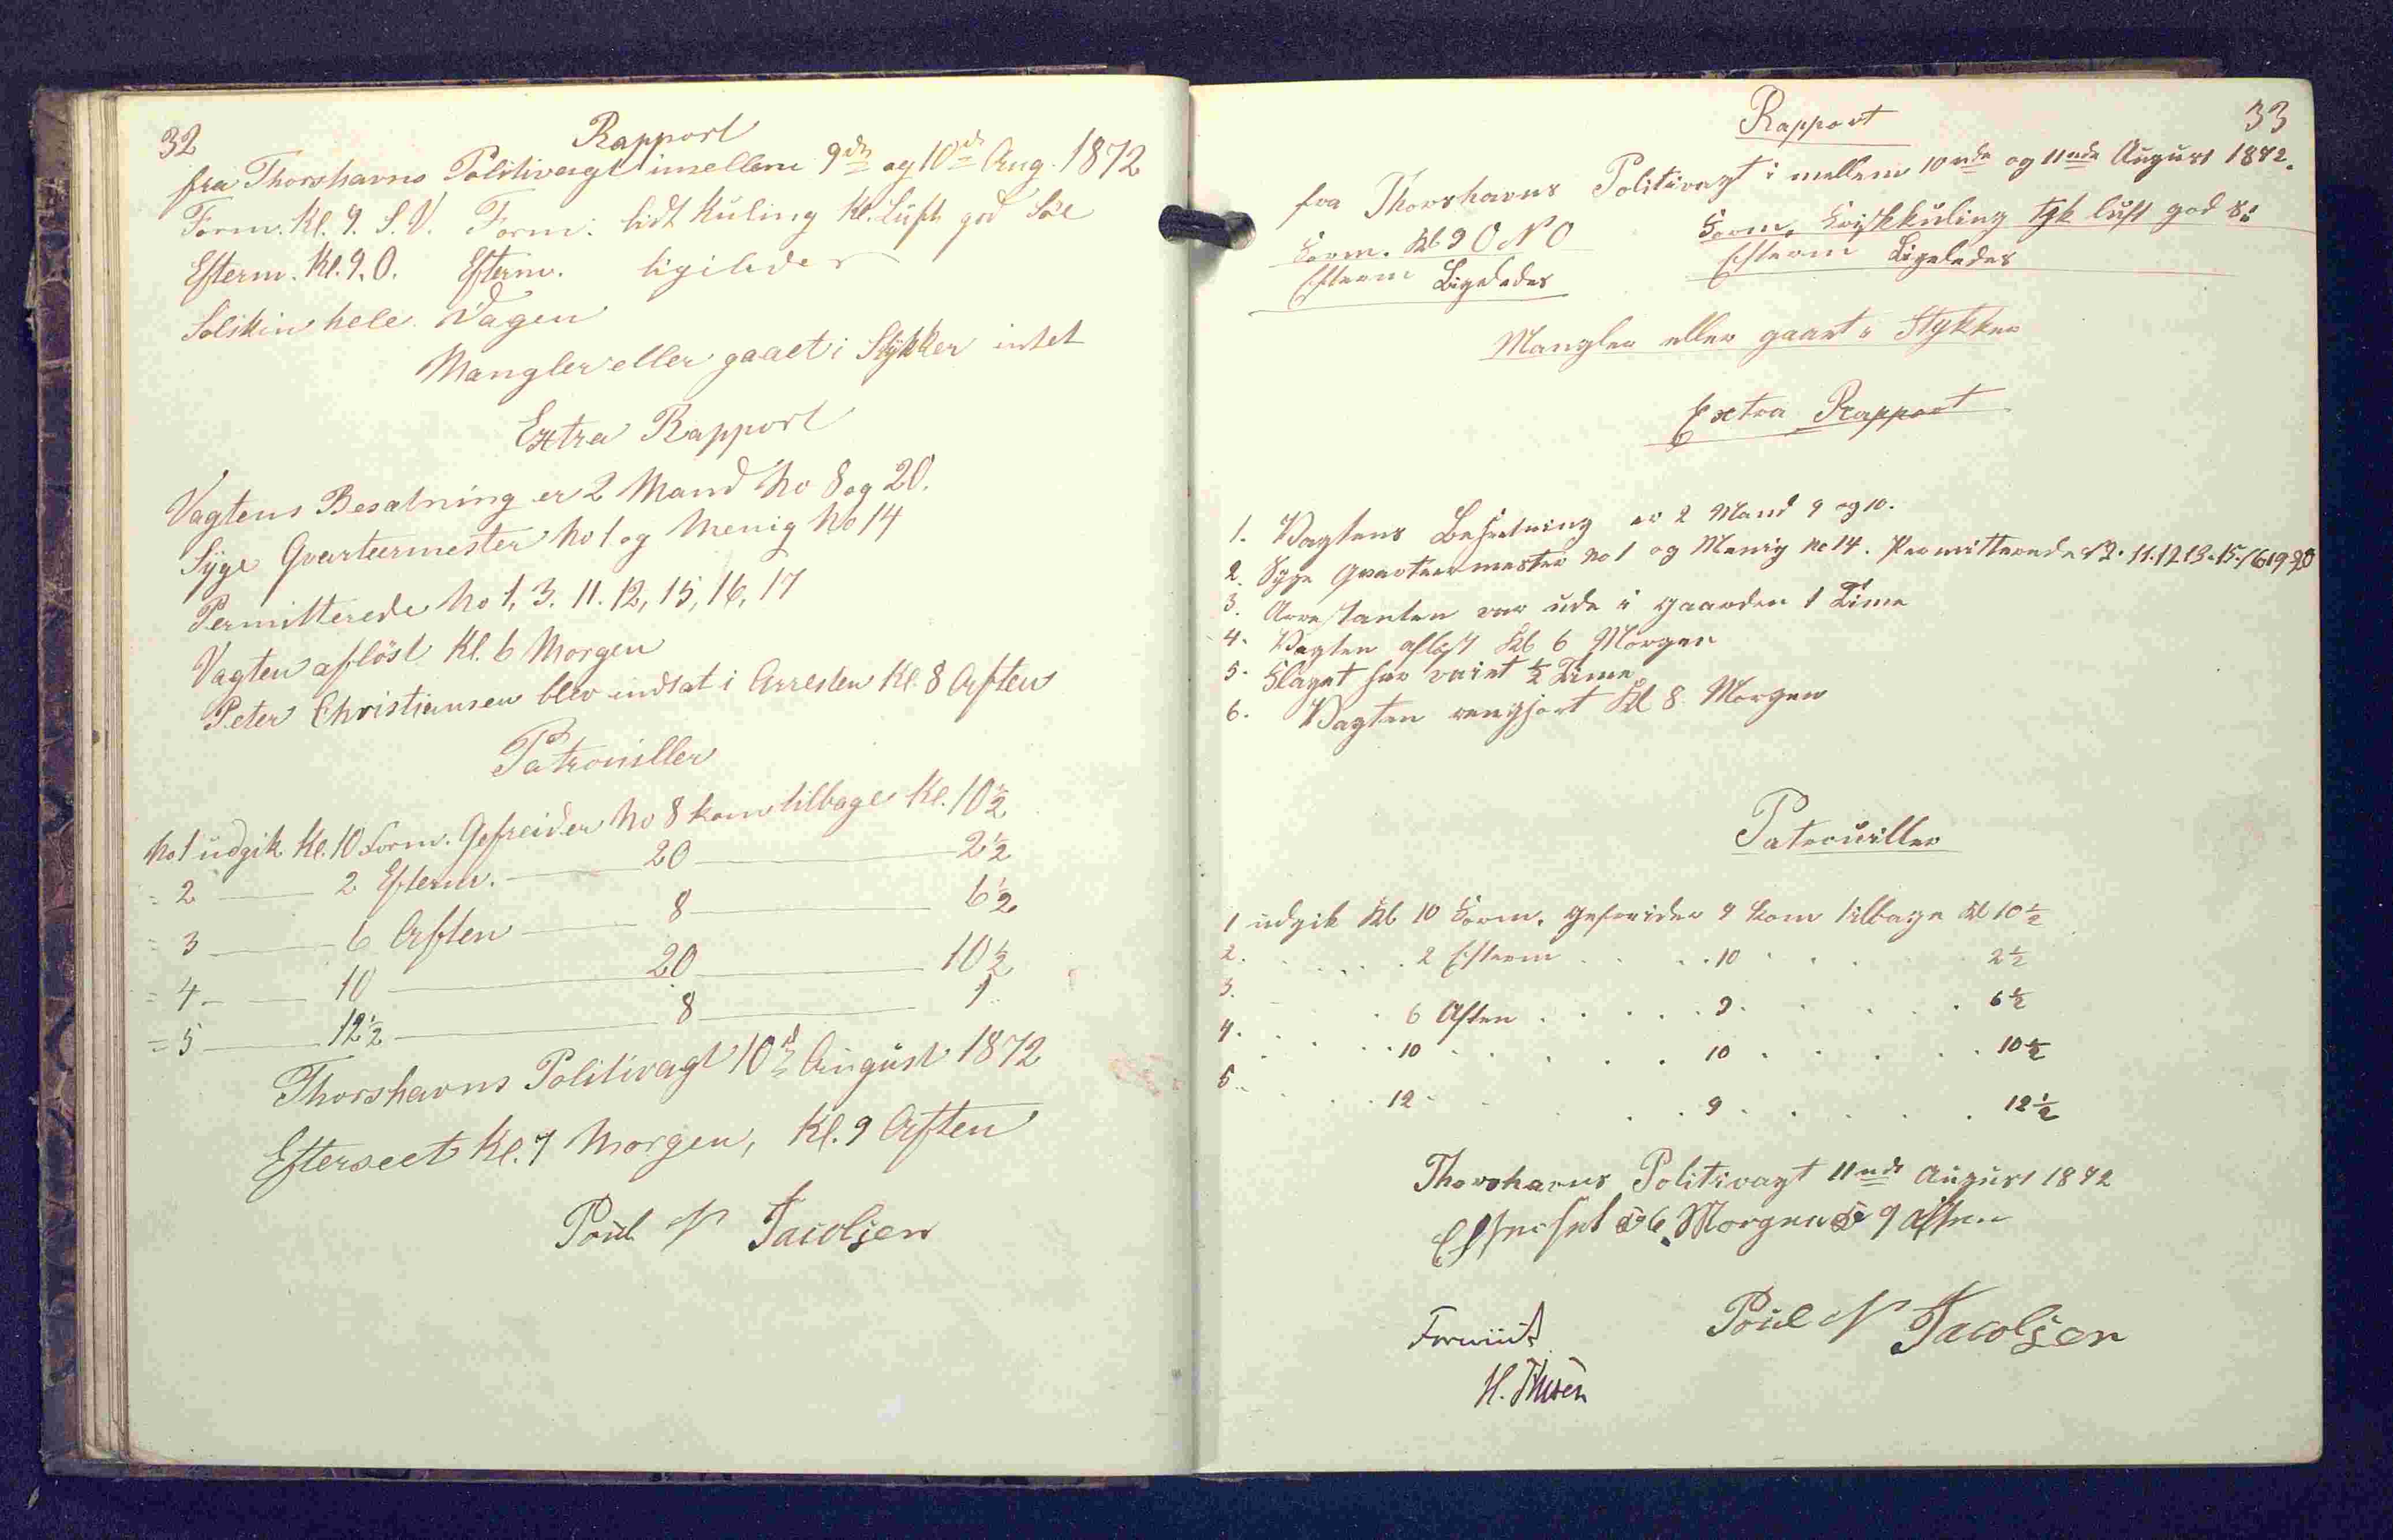 32
Rapport
fra Thorshavns Politivagt imellem 9de og 10de Aug. 1872
Form. Kl. 9. S. V. Form: lidt Kuling Kl. Luft god Söe
Efterm. Kl. 9. O. Efterm. ligiledes
Solskin hele Dagen
Mangler eller gaaet i Stykker intet
Extra Rapport
Vagtens Besatning er 2 Mand No 8 og 20.
Syge Qvarteermester No 1 og Menig No 14
Permitterede No 1, 3. 11. 12, 15, 16, 17
Vagten aflöst Kl. 6 Morgen
Peter Christiansen blev indsat i Arresten Kl. 8 Aften
Patrouiller
No 1 udgik Kl. 10 Form. Gefreider No 8 kom tilbage Kl. 10½
= 2 — 2 Efterm. — 20 — 2½
= 3 — 6 Aften — 8 — 6½
= 4 — 10 — 20 — 10½
= 5 — 12½ — 8 — 1
Thorshavns Politivagt 10de August 1872
Efterseet Kl. 7 Morgen, Kl. 9 Aften
Poul N Jacobsen
33
Rapport
fra Thorshavns Politivagt i mellem 10nde og 11nde August 1872.
Form. Kl 9 O N O Form. Friskkuling tyk luft god
Efterm Ligeledes Efterm Ligeledes
Mangler eller gaaet i Stykker
Extra Rapport
1. Vagtens Besetning er 2 Mand 9 og 10.
2. Syge Qvarteermester No 1 og Menig No 14. Permitterede 11. 12 13. 15. 16 19 20
3. Arrestanten var ude i Gaarden 1 Time
4. Vagten afløst Kl 6 Morgen
5. Flaget har vaiet ½ Time
6. Vagten rengjort Kl 8 Morgen
Patrouiller
1 udgik Kl 10 Form. Gefreider 9 kom tilbage Kl 10½
2. . . . . 2 Efterm . . . 10 . . . 2½
3. . 6 Aften . . . . . 9 . . . . 6½
4. . . . . 10 . . . . 10 . . . . 10½
5. . . . 12 . . . 9 . . . . . 12½
Thorshavns Politivagt 11nde August 1872
Efterset 6 Morgen 9 Aften
Poul N Jacobsen
H.